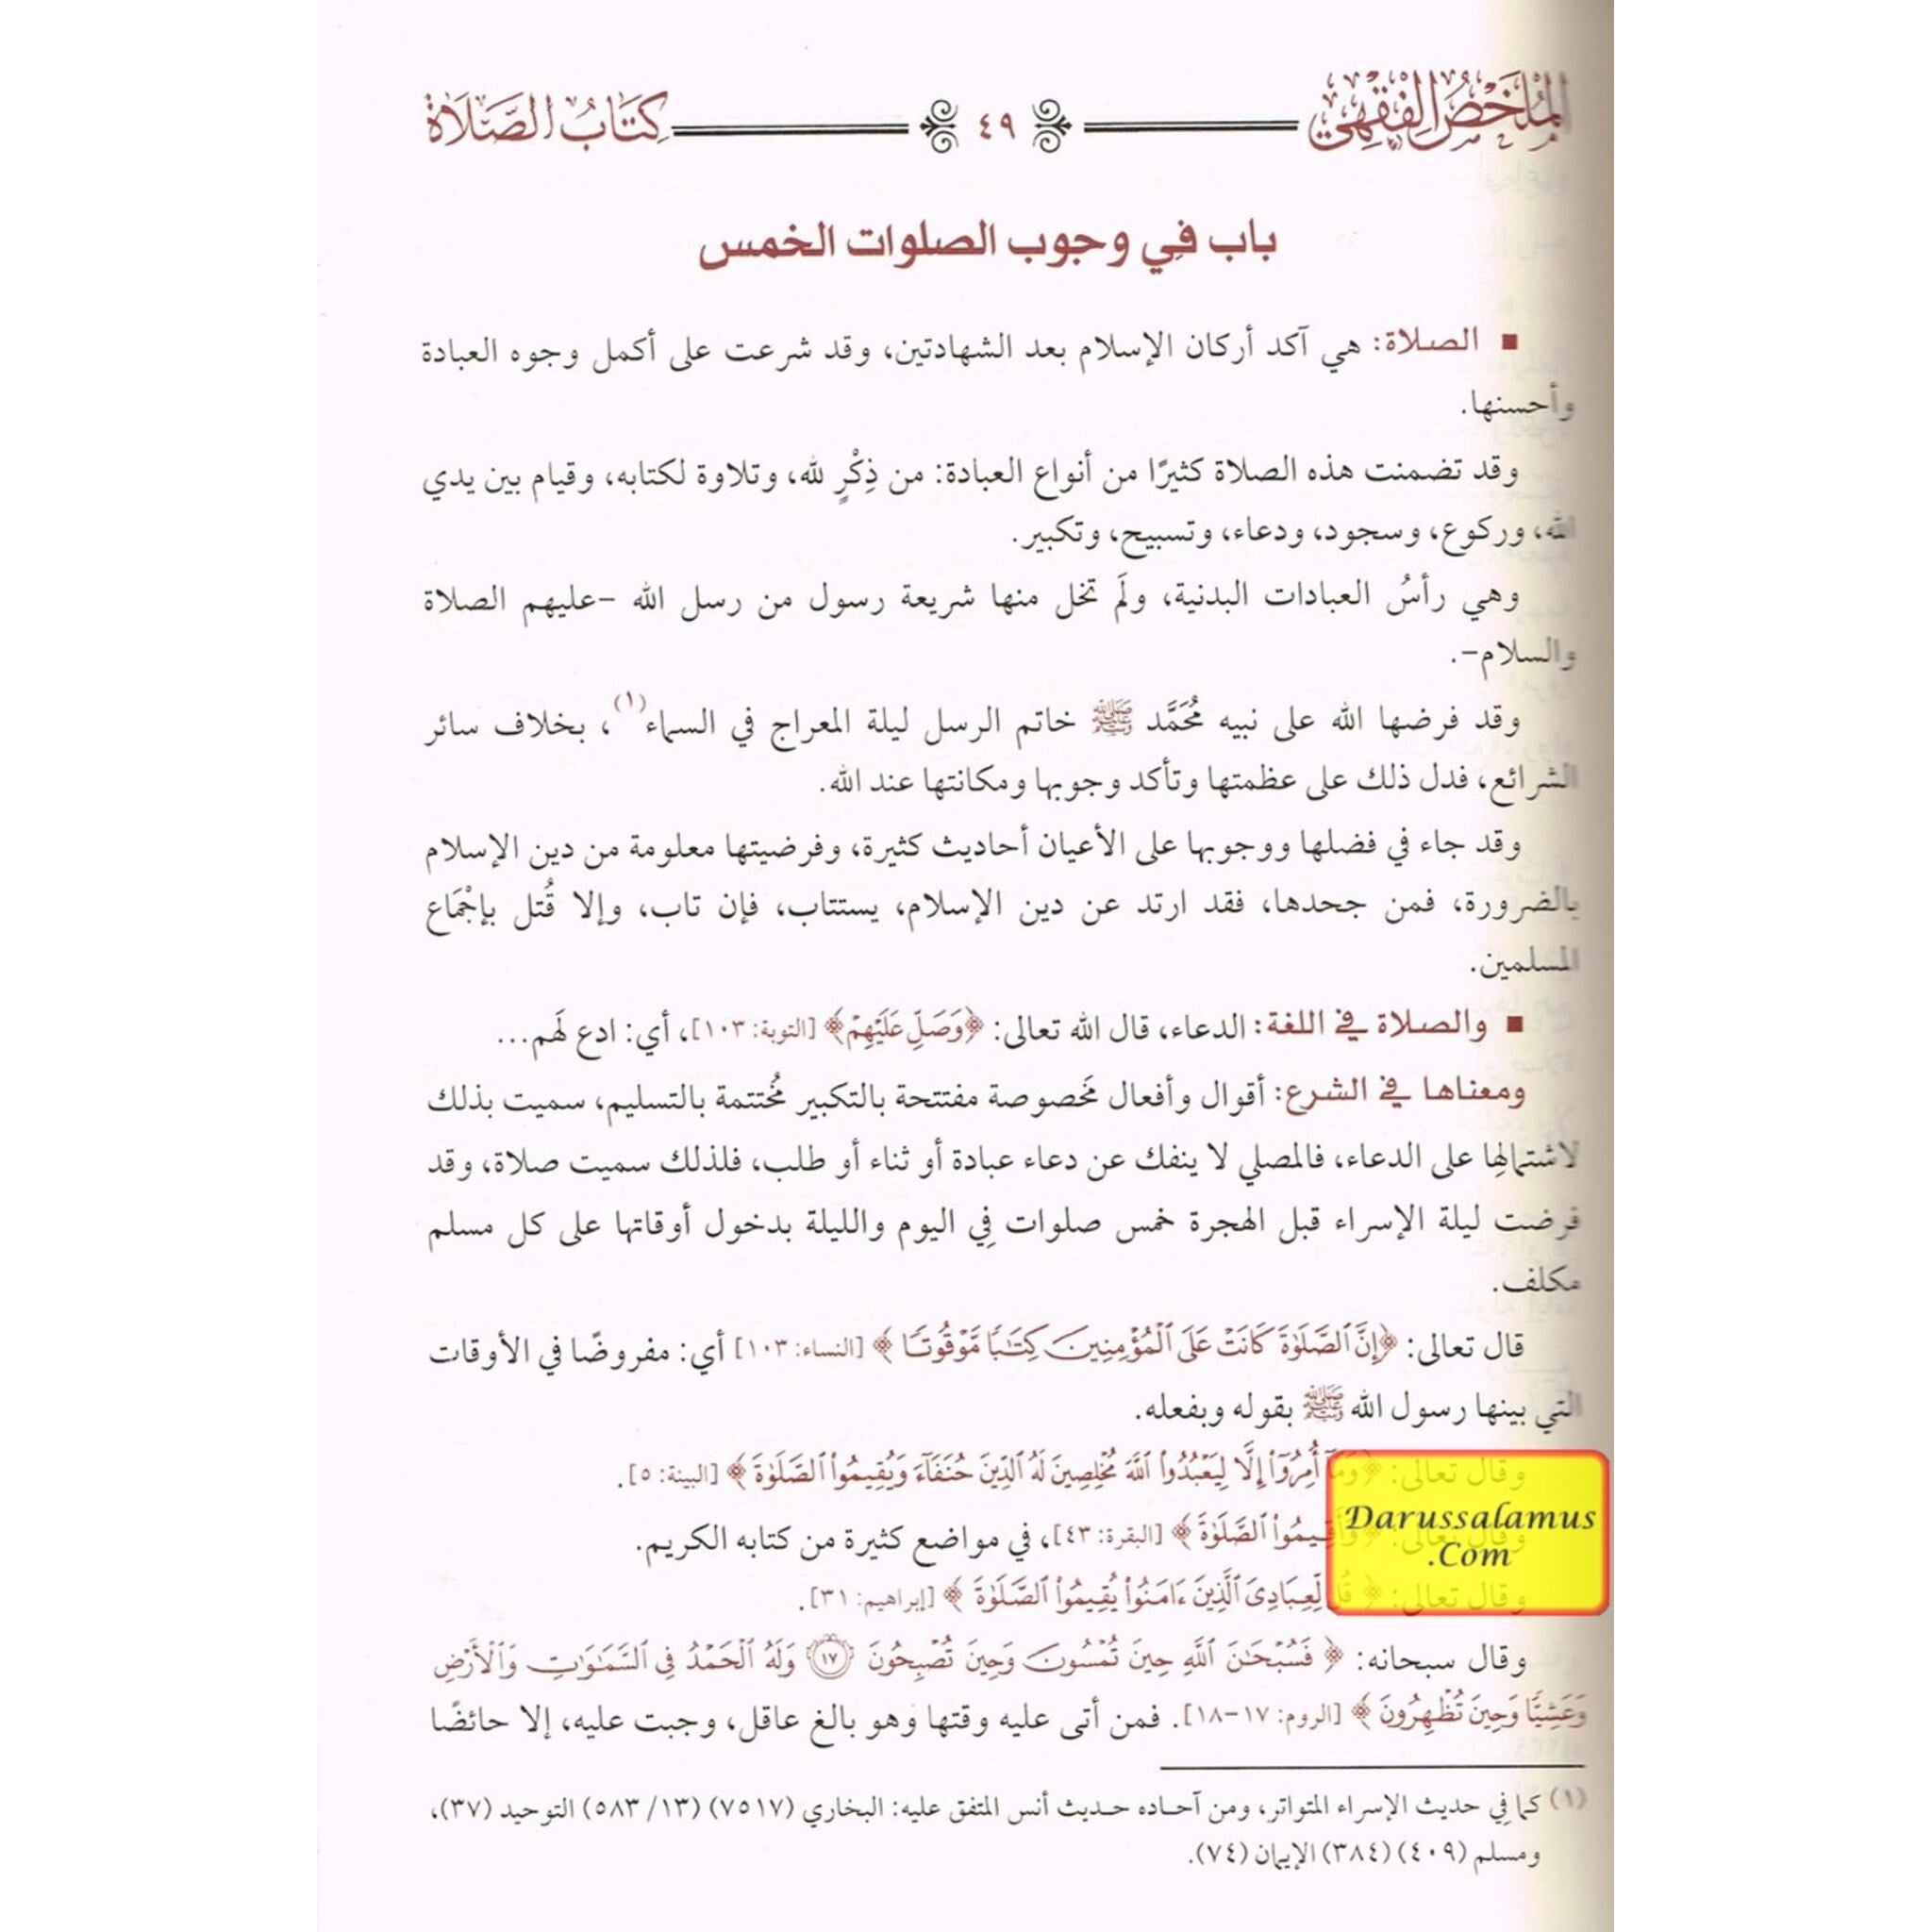 الملخص الفقهي ٤٩ كتاب الصلاة
باب في وجوب الصلوات الخمس
■ الصلاة: هي آكد أركان الإسلام بعد الشهادتين، وقد شرعت على أكمل وجوه العبادة
وأحسنها.
وقد تضمنت هذه الصلاة كثيرًا من أنواع العبادة: من ذِكْرٍ لله، وتلاوة لكتابه، وقيام بين يدي
الله، وركوع، وسجود، ودعاء، وتسبيح، وتكبير.
وهي رأسُ العبادات البدنية، ولَم تخل منها شريعة رسول من رسل الله -عليهم الصلاة
والسلام-.
وقد فرضها الله على نبيه مُحَمَّد ﷺ خاتم الرسل ليلة المعراج في السماء(١)، بخلاف سائر
الشرائع، فدل ذلك على عظمتها وتأكد وجوبها ومكانتها عند الله.
وقد جاء في فضلها ووجوبها على الأعيان أحاديث كثيرة، وفرضيتها معلومة من دين الإسلام
بالضرورة، فمن جحدها، فقد ارتد عن دين الإسلام، يستتاب، فإن تاب، وإلا قُتل بإجْمَاع
المسلمين.
■ والصلاة في اللغة: الدعاء، قال الله تعالى: ﴿وَصَلِّ عَلَيْهِمْ﴾ [التوبة: ١٠٣]، أي: ادع لَهم...
ومعناها في الشرع: أقوال وأفعال مَخصوصة مفتتحة بالتكبير مُختتمة بالتسليم، سميت بذلك
لاشتمالِها على الدعاء، فالمصلي لا ينفك عن دعاء عبادة أو ثناء أو طلب، فلذلك سميت صلاة، وقد
فرضت ليلة الإسراء قبل الهجرة خمس صلوات فِي اليوم والليلة بدخول أوقاتها على كل مسلم
مكلف.
قال تعالى: ﴿إِنَّ ٱلصَّلَوٰةَ كَانَتْ عَلَى ٱلْمُؤْمِنِينَ كِتَٰبًا مَّوْقُوتًا﴾ [النساء: ١٠٣] أي: مفروضًا في الأوقات
التي بينها رسول الله ﷺ بقوله وبفعله.
وقال تعالى: ﴿وَمَآ أُمِرُوٓا۟ إِلَّا لِيَعْبُدُوا۟ ٱللَّهَ مُخْلِصِينَ لَهُ ٱلدِّينَ حُنَفَآءَ وَيُقِيمُوا۟ ٱلصَّلَوٰةَ﴾ [البينة: ٥].
وقال تعالى: ﴿وَأَقِيمُوا۟ ٱلصَّلَوٰةَ﴾ [البقرة: ٤٣]، في مواضع كثيرة من كتابه الكريم.
وقال تعالى: ﴿قُل لِّعِبَادِىَ ٱلَّذِينَ ءَامَنُوا۟ يُقِيمُوا۟ ٱلصَّلَوٰةَ﴾ [إبراهيم: ٣١].
Darussalamus
.Com
وقال سبحانه: ﴿فَسُبْحَٰنَ ٱللَّهِ حِينَ تُمْسُونَ وَحِينَ تُصْبِحُونَ ١٧ وَلَهُ ٱلْحَمْدُ فِى ٱلسَّمَٰوَٰتِ وَٱلْأَرْضِ
وَعَشِيًّا وَحِينَ تُظْهِرُونَ﴾ [الروم: ١٧-١٨]. فمن أتى عليه وقتها وهو بالغ عاقل، وجبت عليه، إلا حائضًا
(١) كما فِي حديث الإسراء المتواتر، ومن آحاده حديث أنس المتفق عليه: البخاري (٧٥١٧) (١٣/ ٥٨٣) التوحيد (٣٧)،
ومسلم (٤٠٩) (٣٨٤) الإيمان (٧٤).